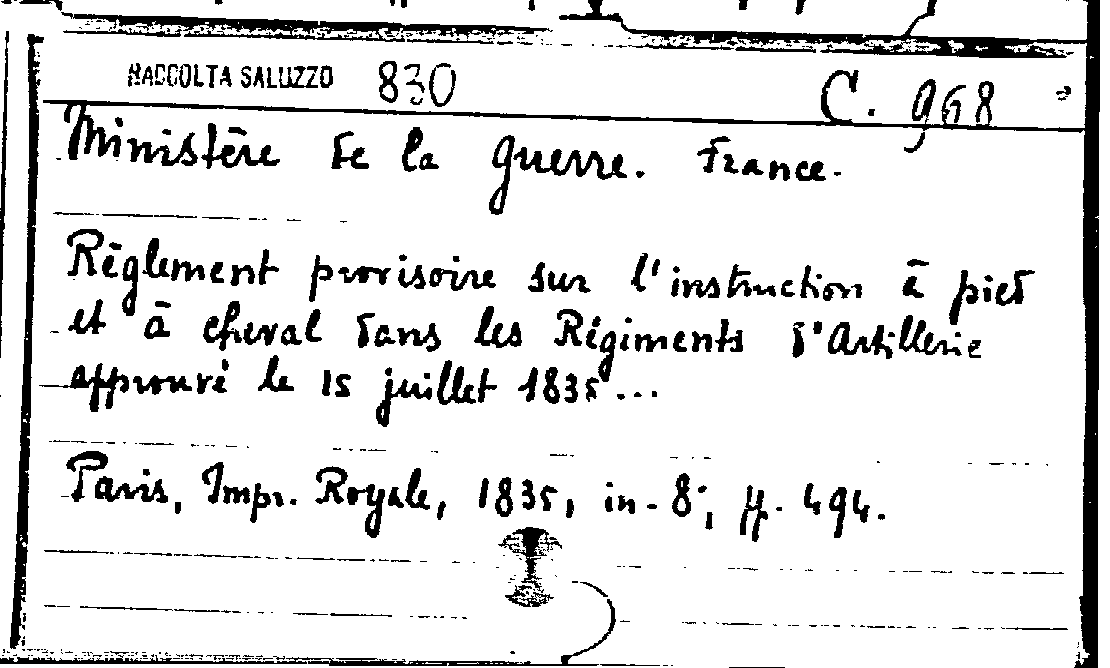 RACCOLTA SALUZZO 830 C. 968
Ministère de la guerre. France.
Règlement provisoire sur l'instruction à pied
et à cheval dans les Régiments d'Artillerie
approuvé le 15 juillet 1835...
Paris, Impr. Royale, 1835, in-8°, pp. 494.